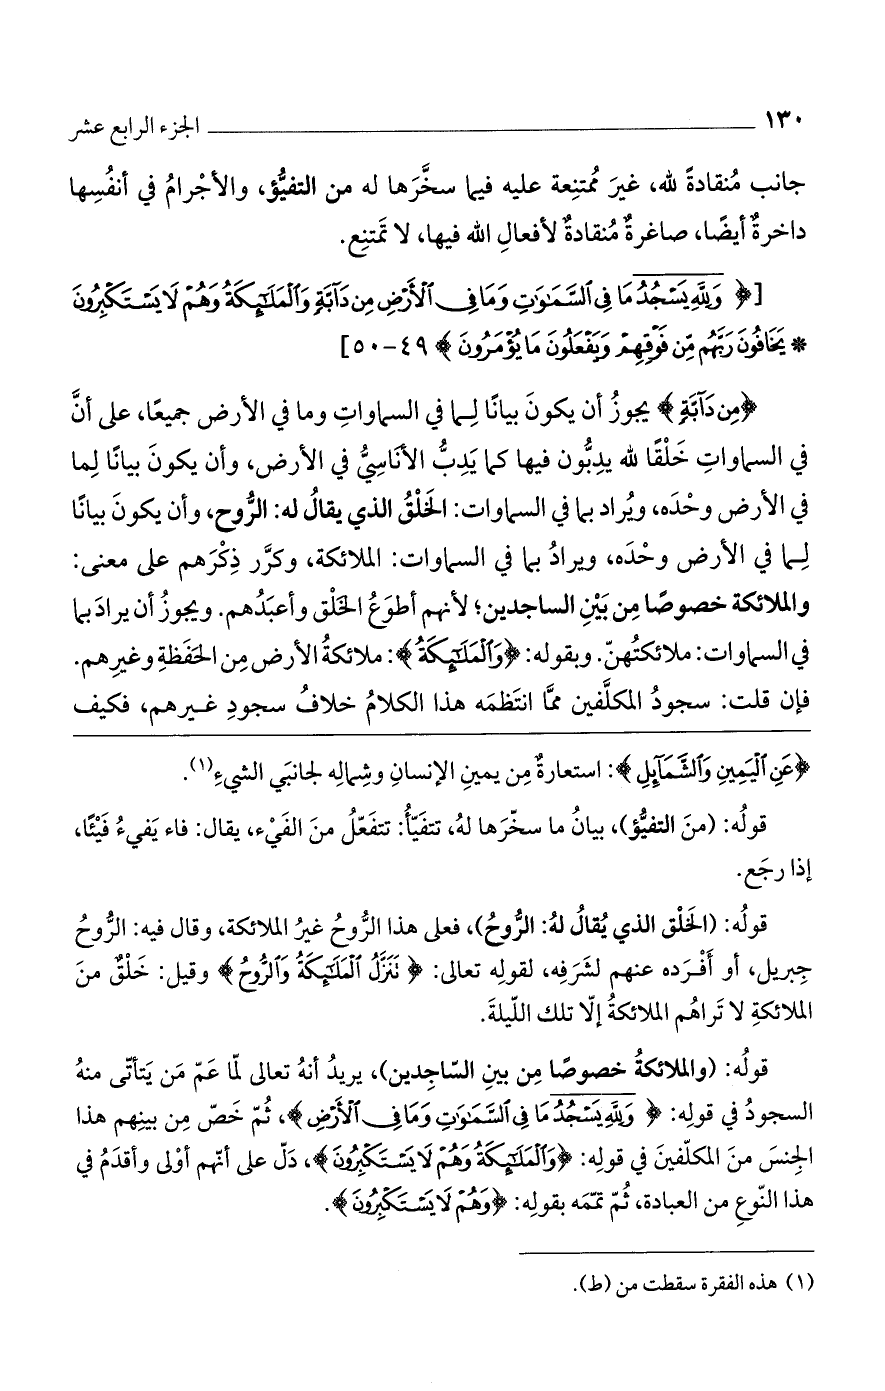 ١٣٠ الجزء الرابع عشر
جانب مُنقادةً لله، غيرَ مُمتنِعة عليه فيما سخَّرَها له من التفيُّؤ، والأجْرامُ في أنفُسِها
داخرةٌ أيضًا، صاغرةٌ مُنقادةٌ لأفعالِ الله فيها، لا تَمتنِع.
[﴿ وَلِلَّهِ يَسْجُدُ مَا فِي السَّمَٰوَٰتِ وَمَا فِي الْأَرْضِ مِن دَآبَّةٍ وَالْمَلَٰٓئِكَةُ وَهُمْ لَا يَسْتَكْبِرُونَ
* يَخَافُونَ رَبَّهُم مِّن فَوْقِهِمْ وَيَفْعَلُونَ مَا يُؤْمَرُونَ ﴾ ٤٩-٥٠]
﴿مِن دَآبَّةٍ ﴾ يجوزُ أن يكونَ بيانًا لِـما في السماواتِ وما في الأرض جميعًا، على أنَّ
في السماواتِ خَلْقًا لله يدِبُّون فيها كما يَدِبُّ الأنَاسِيُّ في الأرض، وأن يكونَ بيانًا لِما
في الأرض وحْدَه، ويُراد بما في السماوات: الخَلْقُ الذي يقالُ له: الرُّوح، وأن يكونَ بيانًا
لِـما في الأرض وحْدَه، ويرادُ بما في السماوات: الملائكة، وكرَّر ذِكْرَهم على معنى:
والملائكة خصوصًا مِن بَيْنِ الساجدين؛ لأنهم أطوَعُ الخَلْق وأعبَدُهم. ويجوزُ أن يرادَ بما
في السماوات: ملائكتُهنّ. وبقوله: ﴿وَالْمَلَٰٓئِكَةُ ﴾: ملائكةُ الأرض مِن الحَفَظةِ وغيرِهم.
فإن قلت: سجودُ المكلَّفين ممَّا انتَظمَه هذا الكلامُ خلافُ سجودِ غـيرهم، فكيف
﴿عَنِ الْيَمِينِ وَالشَّمَآئِلِ ﴾: استعارةٌ مِن يمينِ الإنسانِ وشِمالِه لجانبَي الشيءِ(١).
قولُه: (منَ التفيُّؤ)، بيانُ ما سخّرَها لهُ، تتفَيّأُ: تتفَعّلُ منَ الفَيْء، يقال: فاء يَفيءُ فَيْئًا،
إذا رجَع.
قولُه: (الخَلْق الذي يُقالُ لهُ: الرُّوحُ)، فعلى هذا الرُّوحُ غيرُ الملائكة، وقال فيه: الرُّوحُ
جِبريل، أو أَفْـرَده عنهم لشَرَفِه، لقولِه تعالى: ﴿ نَنَزَّلُ الْمَلَٰٓئِكَةُ وَالرُّوحُ﴾ وقيل: خَلْقٌ منَ
الملائكةِ لا تَراهُم الملائكةُ إلّا تلك اللّيلةَ.
قولُه: (والملائكةُ خصوصًا مِن بينِ السّاجِدين)، يريدُ أنهُ تعالى لمّا عَمّ مَن يَتأتّى منهُ
السجودُ في قولِه: ﴿ وَلِلَّهِ يَسْجُدُ مَا فِي السَّمَٰوَٰتِ وَمَا فِي الْأَرْضِ ﴾، ثُمّ خَصّ مِن بينِهم هذا
الجِنسَ منَ المكلّفينَ في قولِه: ﴿وَالْمَلَٰٓئِكَةُ وَهُمْ لَا يَسْتَكْبِرُونَ ﴾، دَلّ على أنّهم أوْلى وأقدَمُ في
هذا النّوعِ من العبادة، ثُمّ تمّمَه بقولِه: ﴿وَهُمْ لَا يَسْتَكْبِرُونَ ﴾.
(١) هذه الفقرة سقطت من (ط).